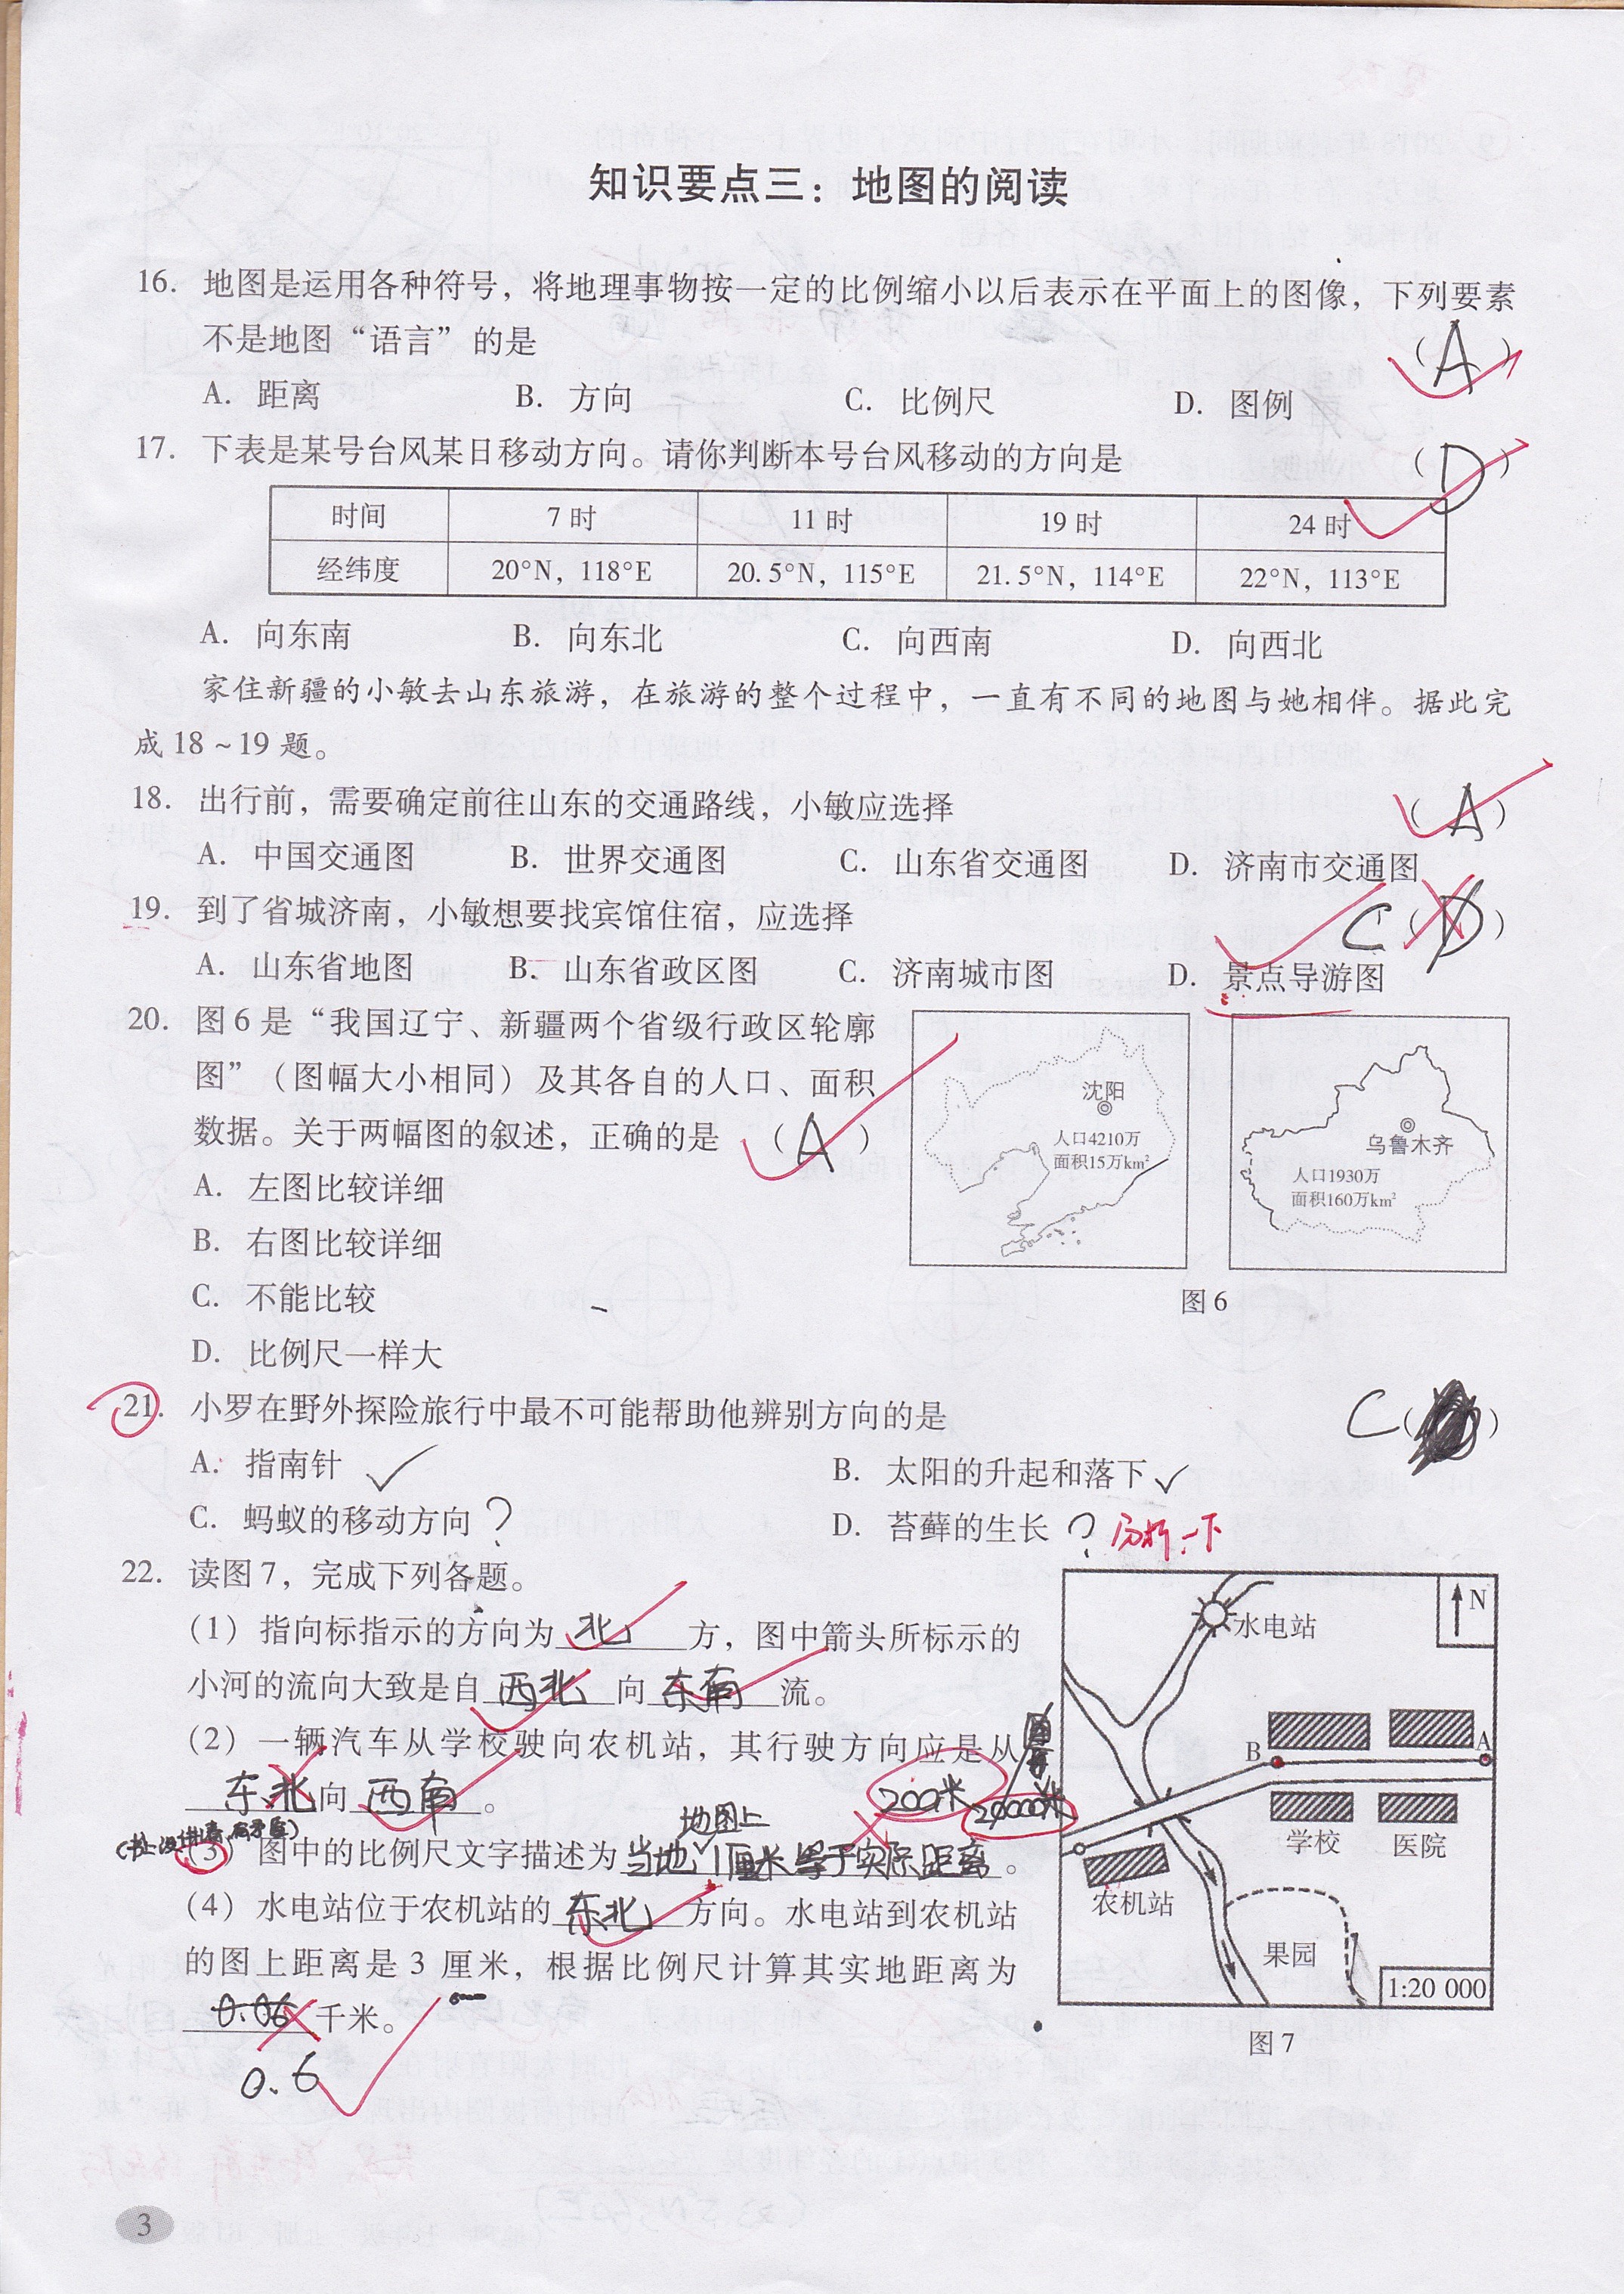 知识要点三：地图的阅读
16. 地图是运用各种符号，将地理事物按一定的比例缩小以后表示在平面上的图像，下列要素
不是地图“语言”的是 （A）
A. 距离 B. 方向 C. 比例尺 D. 图例
17. 下表是某号台风某日移动方向。请你判断本号台风移动的方向是 （D）
时间 7时 11时 19时 24时
经纬度 20°N，118°E 20.5°N，115°E 21.5°N，114°E 22°N，113°E
A. 向东南 B. 向东北 C. 向西南 D. 向西北
家住新疆的小敏去山东旅游，在旅游的整个过程中，一直有不同的地图与她相伴。据此完
成18~19题。
18. 出行前，需要确定前往山东的交通路线，小敏应选择 （A）
A. 中国交通图 B. 世界交通图 C. 山东省交通图 D. 济南市交通图
19. 到了省城济南，小敏想要找宾馆住宿，应选择 C（D）
A. 山东省地图 B. 山东省政区图 C. 济南城市图 D. 景点导游图
20. 图6是“我国辽宁、新疆两个省级行政区轮廓
图”（图幅大小相同）及其各自的人口、面积
数据。关于两幅图的叙述，正确的是 （A）
A. 左图比较详细
B. 右图比较详细
C. 不能比较
D. 比例尺一样大
沈阳
人口4210万
面积15万km²
乌鲁木齐
人口1930万
面积160万km²
图6
21. 小罗在野外探险旅行中最不可能帮助他辨别方向的是 C（ ）
A. 指南针 ✓ B. 太阳的升起和落下 ✓
C. 蚂蚁的移动方向 ? D. 苔藓的生长 ? 分析一下
22. 读图7，完成下列各题。
（1）指向标指示的方向为 北 方，图中箭头所标示的
小河的流向大致是自 西北 向 东南 流。
（2）一辆汽车从学校驶向农机站，其行驶方向应是从
东北 向 西南 。
200米
20000米
地图上
（3）图中的比例尺文字描述为 当地1厘米等于实际距离 。
（4）水电站位于农机站的 东北 方向。水电站到农机站
的图上距离是3厘米，根据比例尺计算其实地距离为
0.06 千米。
0.6
N
水电站
B
A
学校
医院
农机站
果园
1:20 000
图7
3